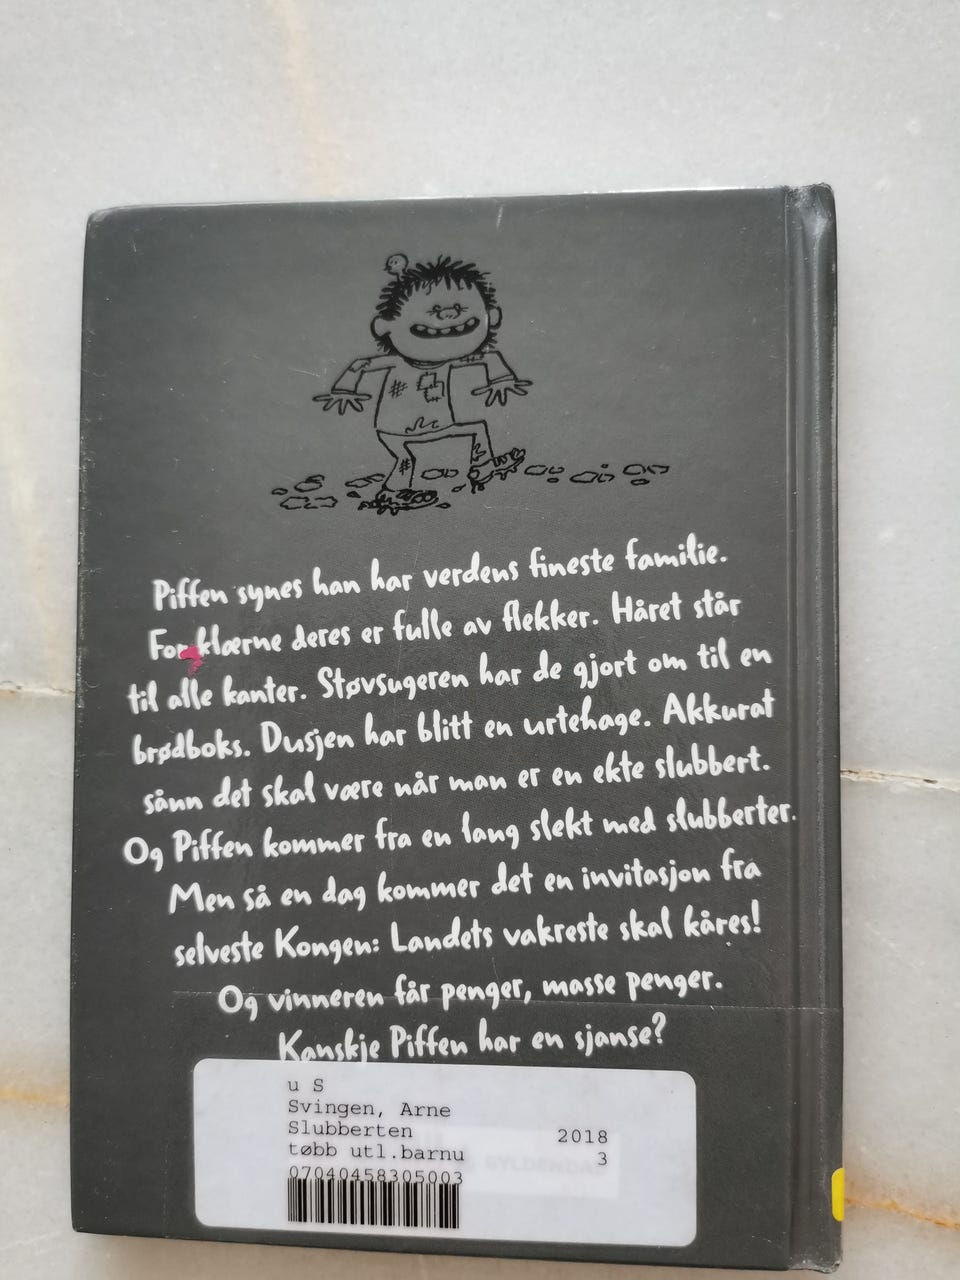 Piffen synes han har verdens fineste familie.
For klærne deres er fulle av flekker. Håret står
til alle kanter. Støvsugeren har de gjort om til en
brødboks. Dusjen har blitt en urtehage. Akkurat
sånn det skal være når man er en ekte slubbert.
Og Piffen kommer fra en lang slekt med slubberter.
Men så en dag kommer det en invitasjon fra
selveste Kongen: Landets vakreste skal kåres!
Og vinneren får penger, masse penger.
Kanskje Piffen har en sjanse?
u S
Svingen, Arne
Slubberten 2018
tøbb utl.barnu 3
07040458305003
GYLDENDAL